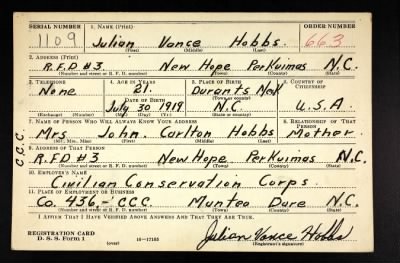 SERIAL NUMBER 1. NAME (Print) ORDER NUMBER
1109 Julian Vance Hobbs. 663
(First) (Middle) (Last)
2. ADDRESS (Print)
R.F.D #3 New Hope Perkuimas N.C.
(Number and street or R. F. D. number) (Town) (County) (State)
3. TELEPHONE 4. AGE IN YEARS 5. PLACE OF BIRTH 6. COUNTRY OF CITIZENSHIP
None 21. Durants Neck
DATE OF BIRTH (Town or county)
July 30 1919 N.C. U.S.A
(Exchange) (Number) (Mo.) (Day) (Yr.) (State or country)
7. NAME OF PERSON WHO WILL ALWAYS KNOW YOUR ADDRESS 8. RELATIONSHIP OF THAT PERSON
Mrs John. Carlton Hobbs Mother.
(Mr., Mrs., Miss) (First) (Middle) (Last)
9. ADDRESS OF THAT PERSON
R.F.D #3 New Hope Perkuimas N.C.
(Number and street or R. F. D. number) (Town) (County) (State)
10. EMPLOYER'S NAME
Civilian Conservation Corps.
11. PLACE OF EMPLOYMENT OR BUSINESS
Co. 436,- CCC. Munteo Dare N.C.
(Number and street or R. F. D. number) (Town) (County) (State)
I AFFIRM THAT I HAVE VERIFIED ABOVE ANSWERS AND THAT THEY ARE TRUE.
REGISTRATION CARD
D. S. S. Form 1 (over) 16—17105 Julian Vance Hobbs
(Registrant's signature)
C.C.C.